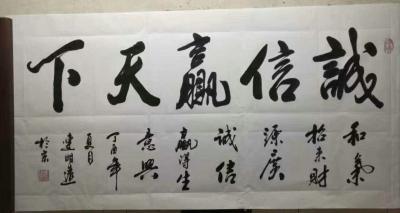 誠信贏天下
和氣
招来財
源廣
誠信
贏得生
意興
丁酉年
夏月
於京